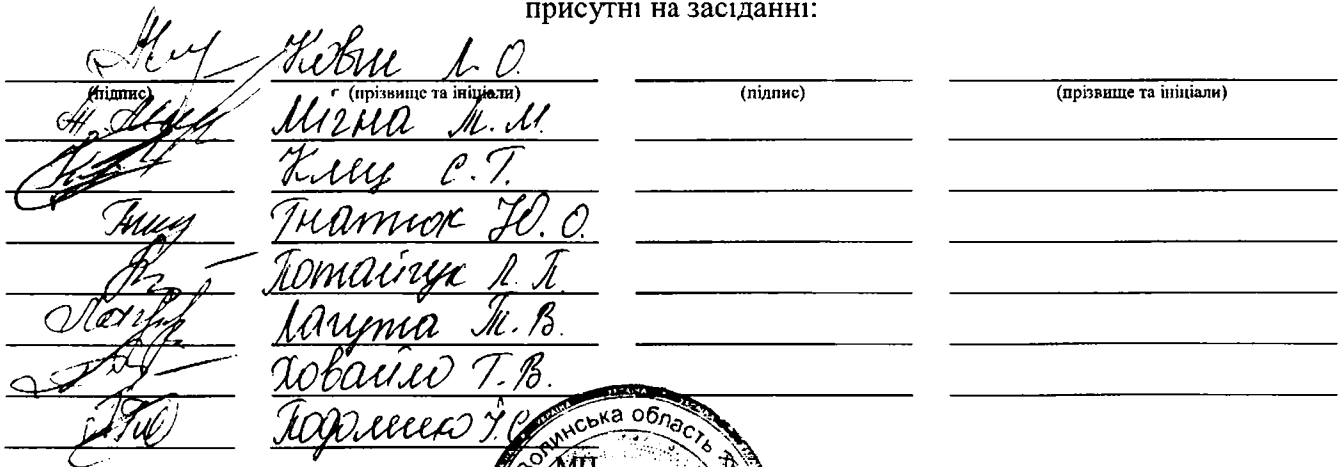 присутні на засіданні:
Л. О.
(підпис) (прізвище та ініціали) (підпис) (прізвище та ініціали)
Мігна М. М.
Клец С. Т.
Гнатюк Ю. О.
Потайчук Л. П.
Лагута Т. В.
Ховайло Т. В.
МП
Волинська область